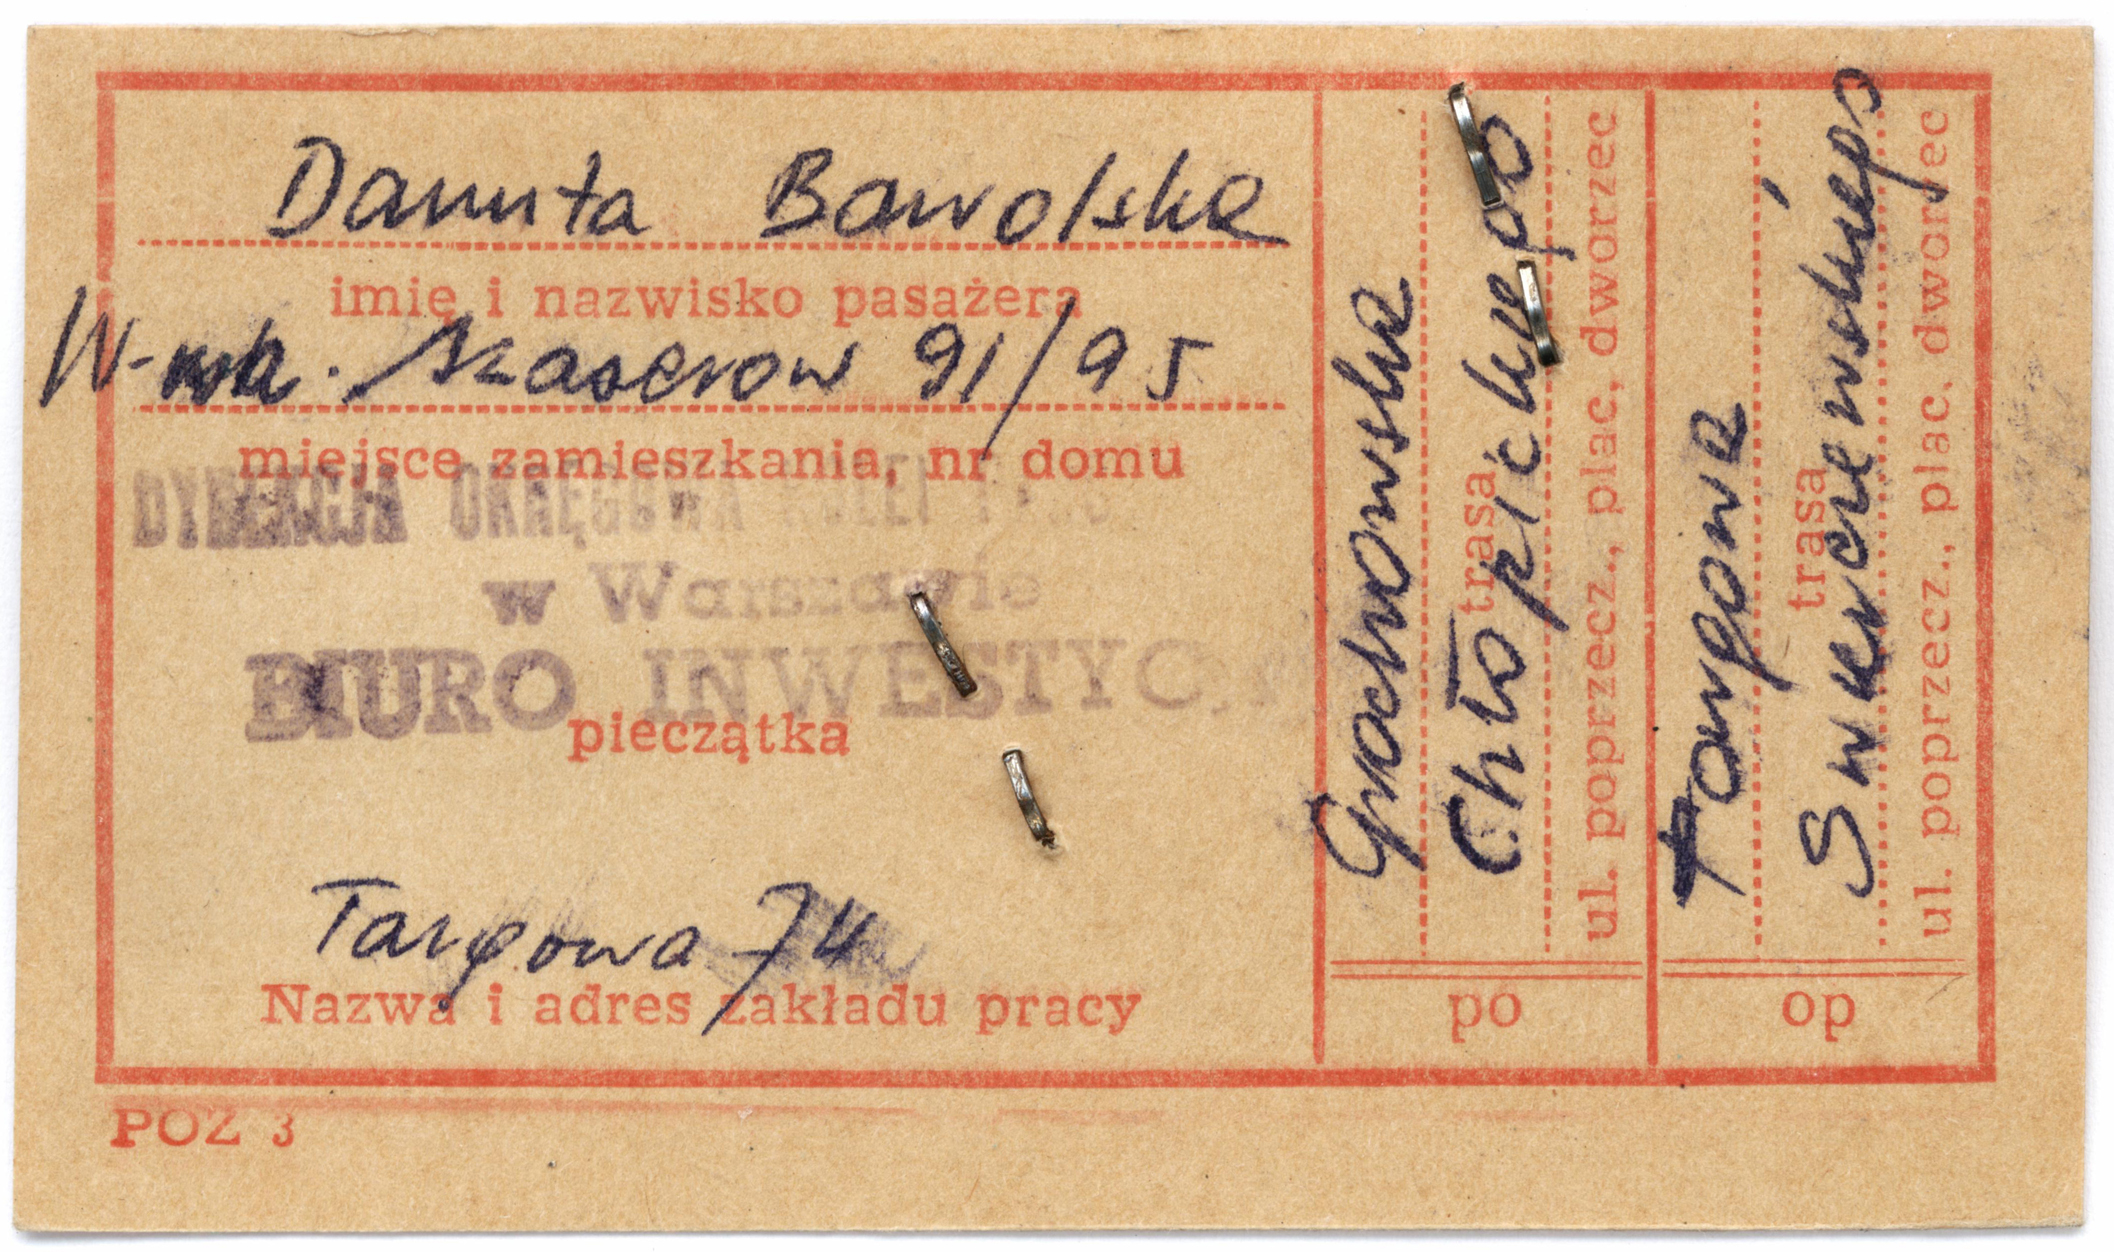 Danuta Bawolska
imię i nazwisko pasażera
W-wa. Szaserow 91/95
miejsce zamieszkania, nr domu
DYREKCJA OKRĘGOWA KOLEI
w Warszawie
BIURO INWESTYC
pieczątka
Targowa 74
Nazwa i adres zakładu pracy
POZ 3
Grochowska
trasa
Chłopickiego
ul. poprzecz., plac, dworzec
po
Targowa
trasa
Świerczewskiego
ul. poprzecz., plac, dworzec
op